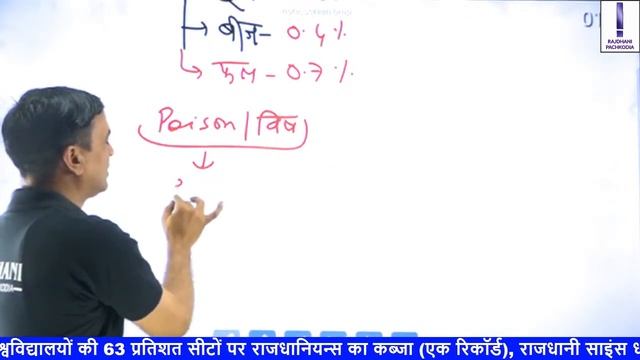 → बीज - 0.4%
→ फल - 0.7%
Poison / विष
RAJDHANI
PACHKODIA
श्वविद्यालयों की 63 प्रतिशत सीटों पर राजधानियन्स का कब्जा (एक रिकॉर्ड), राजधानी साइंस